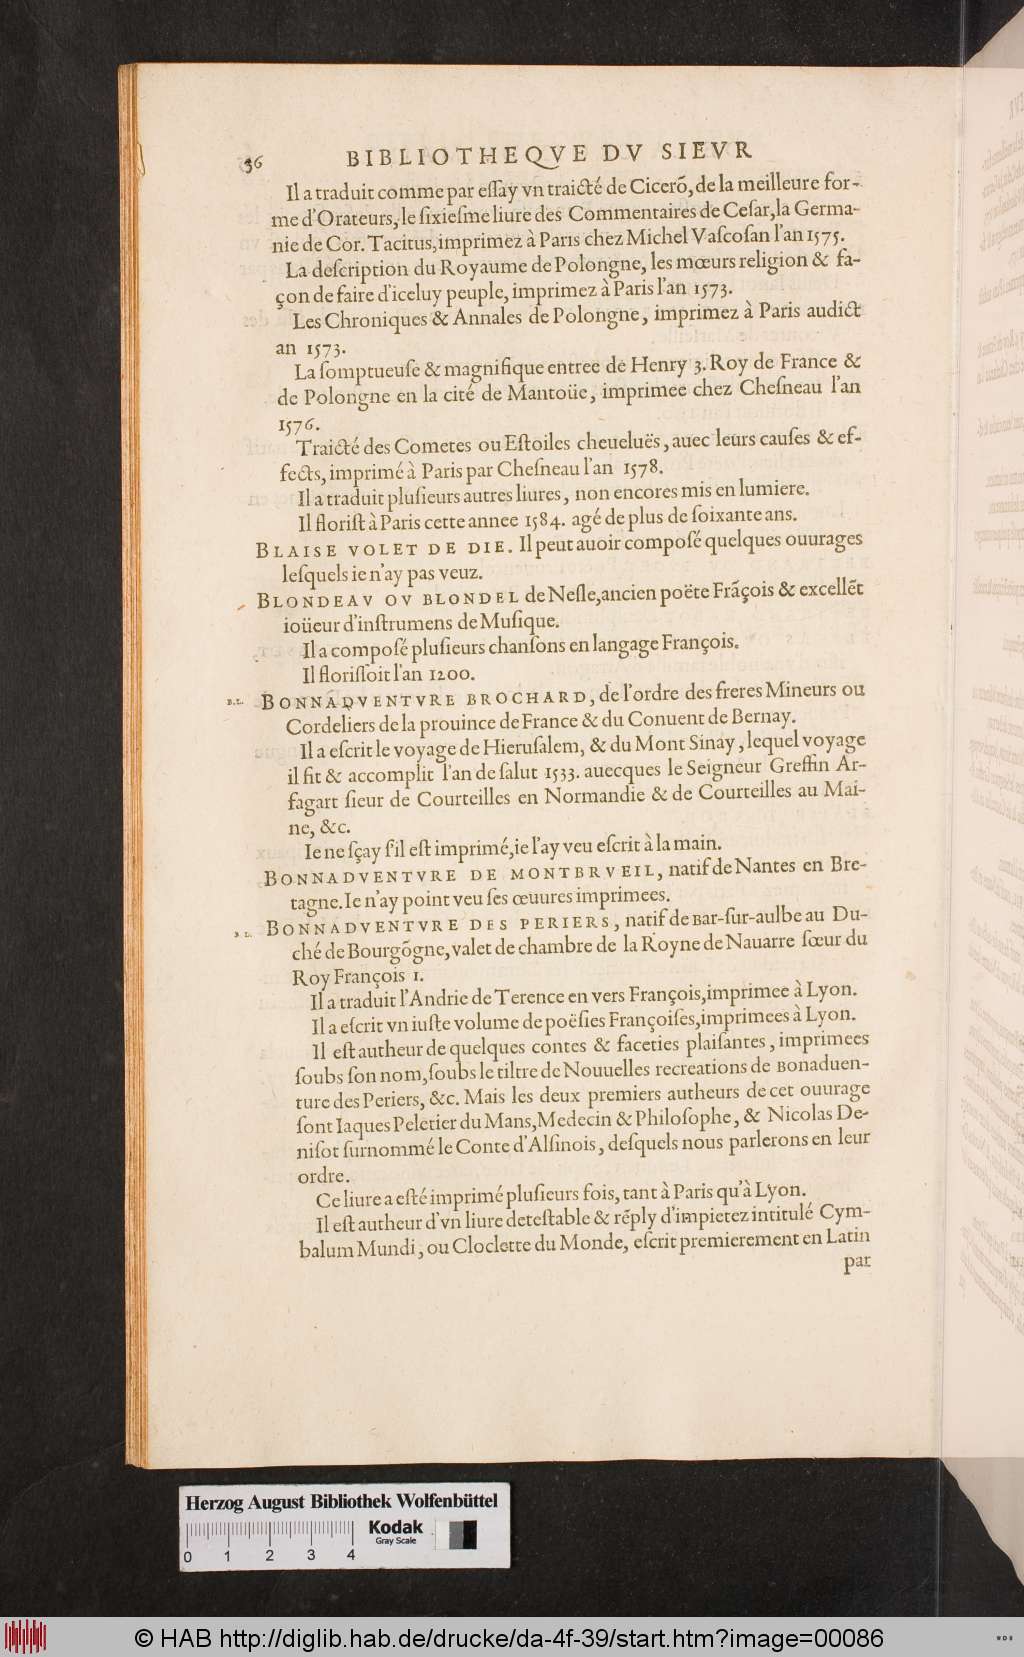 36 BIBLIOTHEQVE DV SIEVR
Il a traduit comme par eſſay vn traicté de Cicerõ, de la meilleure for-
me d'Orateurs, le ſixieſme liure des Commentaires de Ceſar, la Germa-
nie de Cor. Tacitus, imprimez à Paris chez Michel Vaſcoſan l'an 1575.
La deſcription du Royaume de Polongne, les mœurs religion & fa-
çon de faire d'iceluy peuple, imprimez à Paris l'an 1573.
Les Chroniques & Annales de Polongne, imprimez à Paris audict
an 1573.
La ſomptueuſe & magnifique entree de Henry 3. Roy de France &
de Polongne en la cité de Mantoüe, imprimee chez Cheſneau l'an
1576.
Traicté des Cometes ou Eſtoiles cheueluës, auec leurs cauſes & ef-
fects, imprimé à Paris par Cheſneau l'an 1578.
Il a traduit pluſieurs autres liures, non encores mis en lumiere.
Il floriſt à Paris cette annee 1584. agé de plus de ſoixante ans.
BLAISE VOLET DE DIE. Il peut auoir compoſé quelques ouurages
leſquels ie n'ay pas veuz.
BLONDEAV OV BLONDEL de Neſle, ancien poëte Frãçois & excellẽt
ioüeur d'inſtrumens de Muſique.
Il a compoſé pluſieurs chanſons en langage François.
Il floriſſoit l'an 1200.
B.L. BONNADVENTVRE BROCHARD, de l'ordre des freres Mineurs ou
Cordeliers de la prouince de France & du Conuent de Bernay.
Il a eſcrit le voyage de Hieruſalem, & du Mont Sinay, lequel voyage
il fit & accomplit l'an de ſalut 1533. auecques le Seigneur Greffin Ar-
fagart ſieur de Courteilles en Normandie & de Courteilles au Mai-
ne, &c.
Ie ne ſçay ſil eſt imprimé, ie l'ay veu eſcrit à la main.
BONNADVENTVRE DE MONTBRVEIL, natif de Nantes en Bre-
tagne. Ie n'ay point veu ſes œuures imprimees.
B.L. BONNADVENTVRE DES PERIERS, natif de Bar-ſur-aulbe au Du-
ché de Bourgõgne, valet de chambre de la Royne de Nauarre ſœur du
Roy François 1.
Il a traduit l'Andrie de Terence en vers François, imprimee à Lyon.
Il a eſcrit vn iuſte volume de poëſies Françoiſes, imprimees à Lyon.
Il eſt autheur de quelques contes & faceties plaiſantes, imprimees
ſoubs ſon nom, ſoubs le tiltre de Nouuelles recreations de Bonaduen-
ture des Periers, &c. Mais les deux premiers autheurs de cet ouurage
ſont Iaques Peletier du Mans, Medecin & Philoſophe, & Nicolas De-
niſot ſurnommé le Conte d'Alſinois, deſquels nous parlerons en leur
ordre.
Ce liure a eſté imprimé pluſieurs fois, tant à Paris qu'à Lyon.
Il eſt autheur d'vn liure deteſtable & rẽply d'impietez intitulé Cym-
balum Mundi, ou Cloclette du Monde, eſcrit premierement en Latin
par
Herzog August Bibliothek Wolfenbüttel
Kodak
Gray Scale
0 1 2 3 4
© HAB http://diglib.hab.de/drucke/da-4f-39/start.htm?image=00086